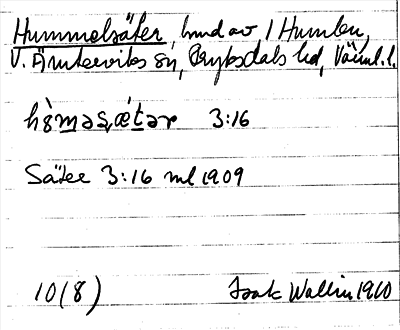 Hummelsäter, hmd av 1 Humlen,
V. Ämterviks sn, Fryksdals hd, Värml. l.
hò̤məsæ̀tər 3:16
Säter 3:16 ml 1909
10(8) Isak Wallin 1960